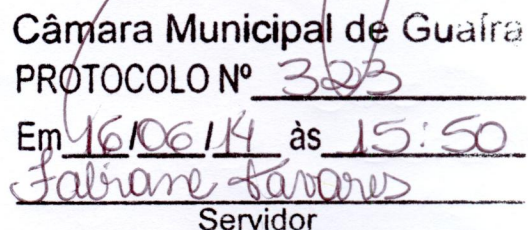 Câmara Municipal de Guaíra
PROTOCOLO Nº 323
Em 16/06/14 às 15:50
Fabiane Tavares
Servidor